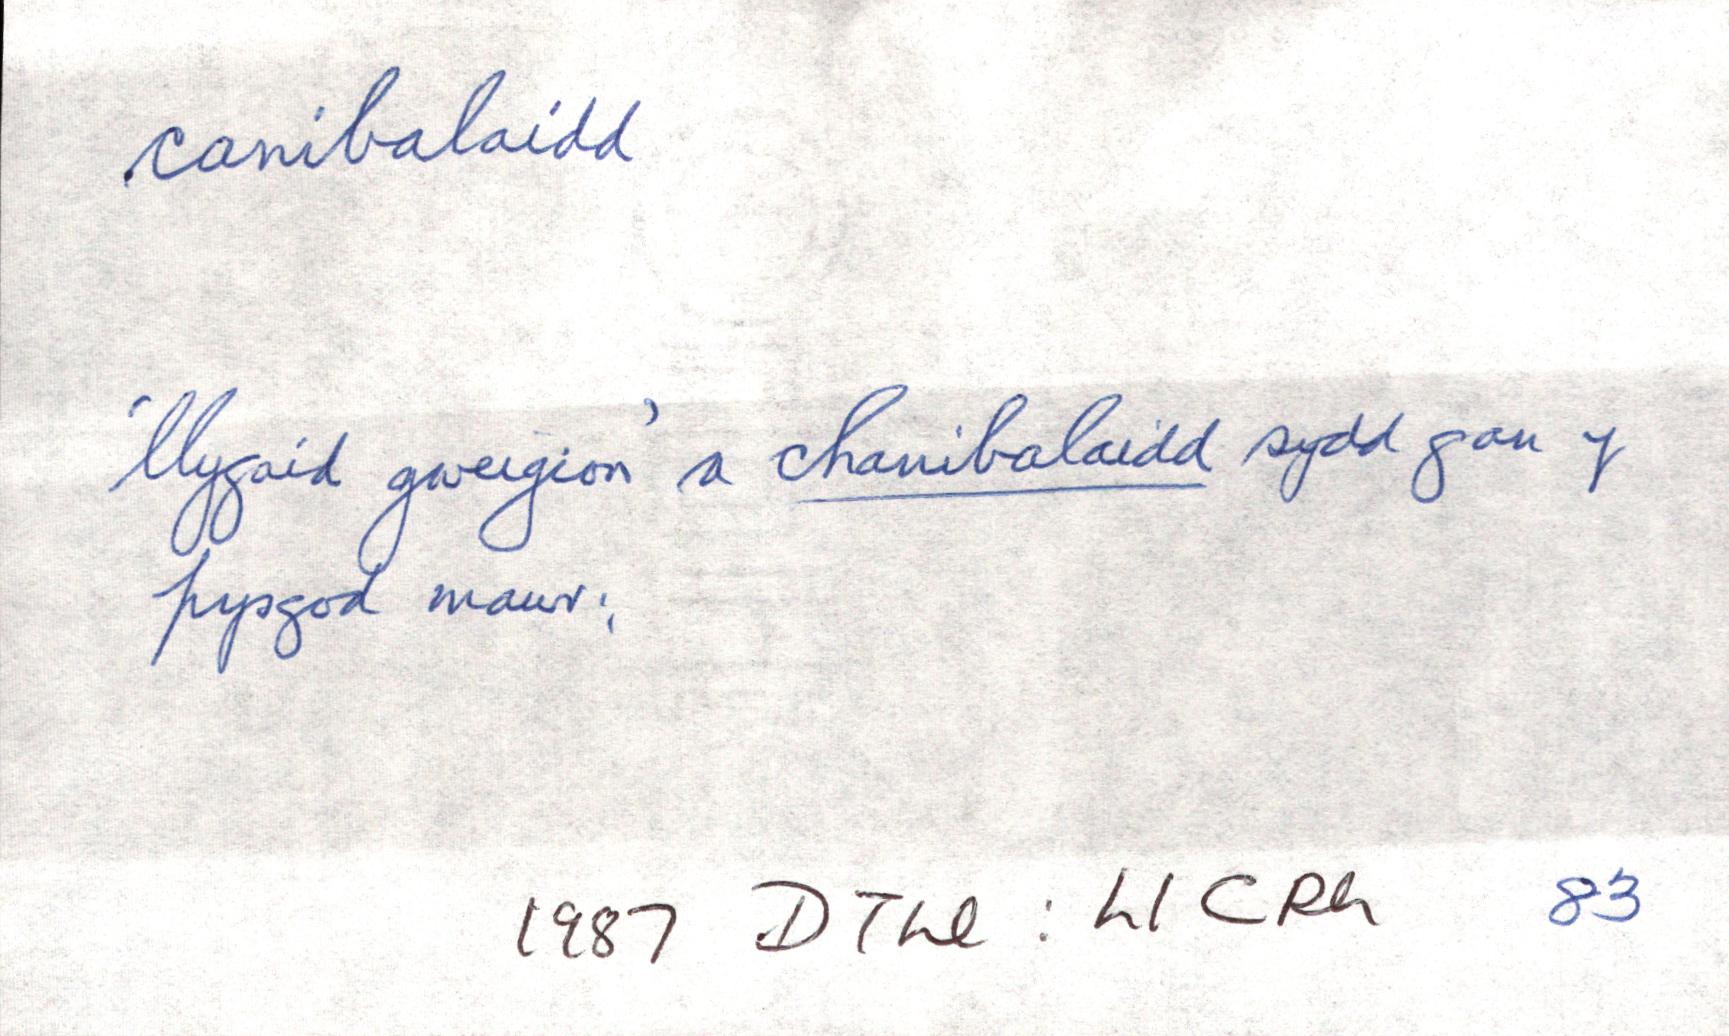 canibalaidd
'llygaid gweigion' a chanibalaidd sydd gan y
pysgod mawr;
1987 D Thl : Ll C Rh 83